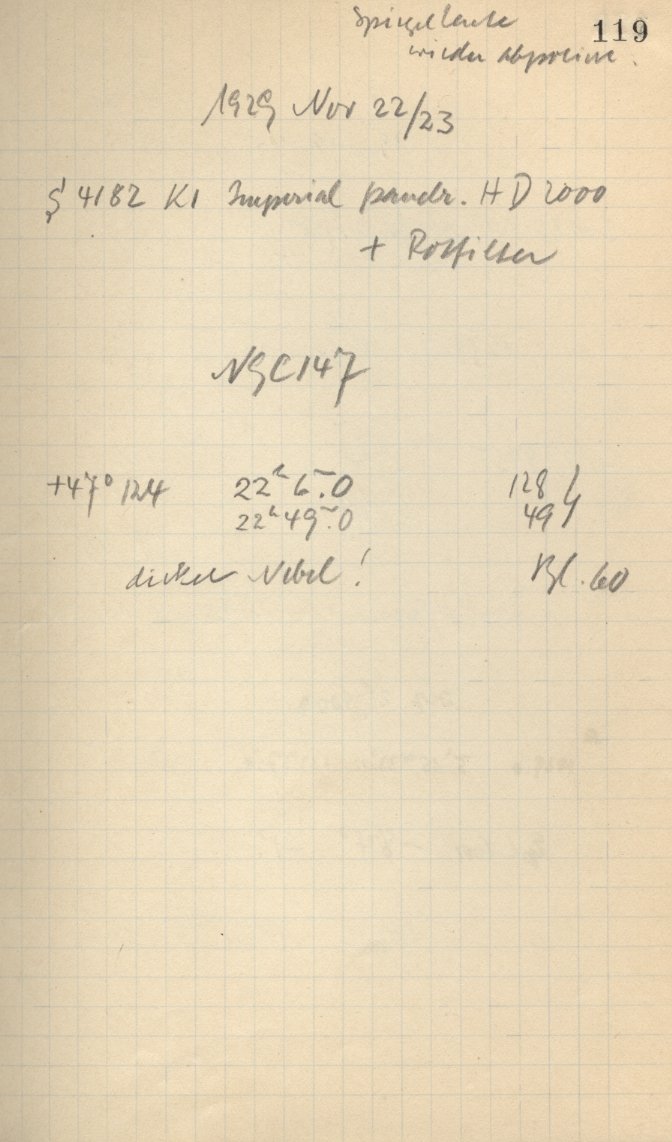 119
Spiegel heute
wieder abpoliert.
1929 Nov 22/23
S 4182 K1 Imperial panchr. H D 2000
+ Rotfilter
NGC 147
+47° 124 22ʰ 6ᵐ.0 128
22ʰ 49ᵐ.0 49
dicker Nebel! Bl. 60